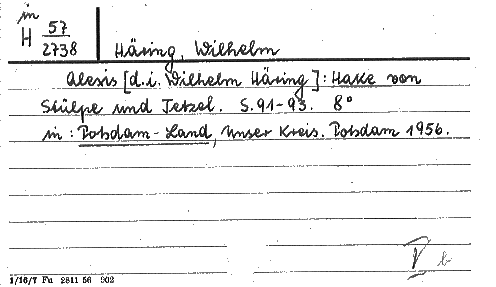 in
H 57/2738
Häring, Wilhelm
Alexis [d.i. Wilhelm Häring]: Hake von
Stülpe und Tetzel. S. 91-93. 8°
in: Potsdam-Land, Unser Kreis. Potsdam 1956.
V b
1/16/7 Fu 2811 56 902